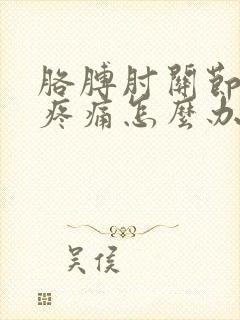 胳膊肘關節
疼痛怎麼办
吴侯